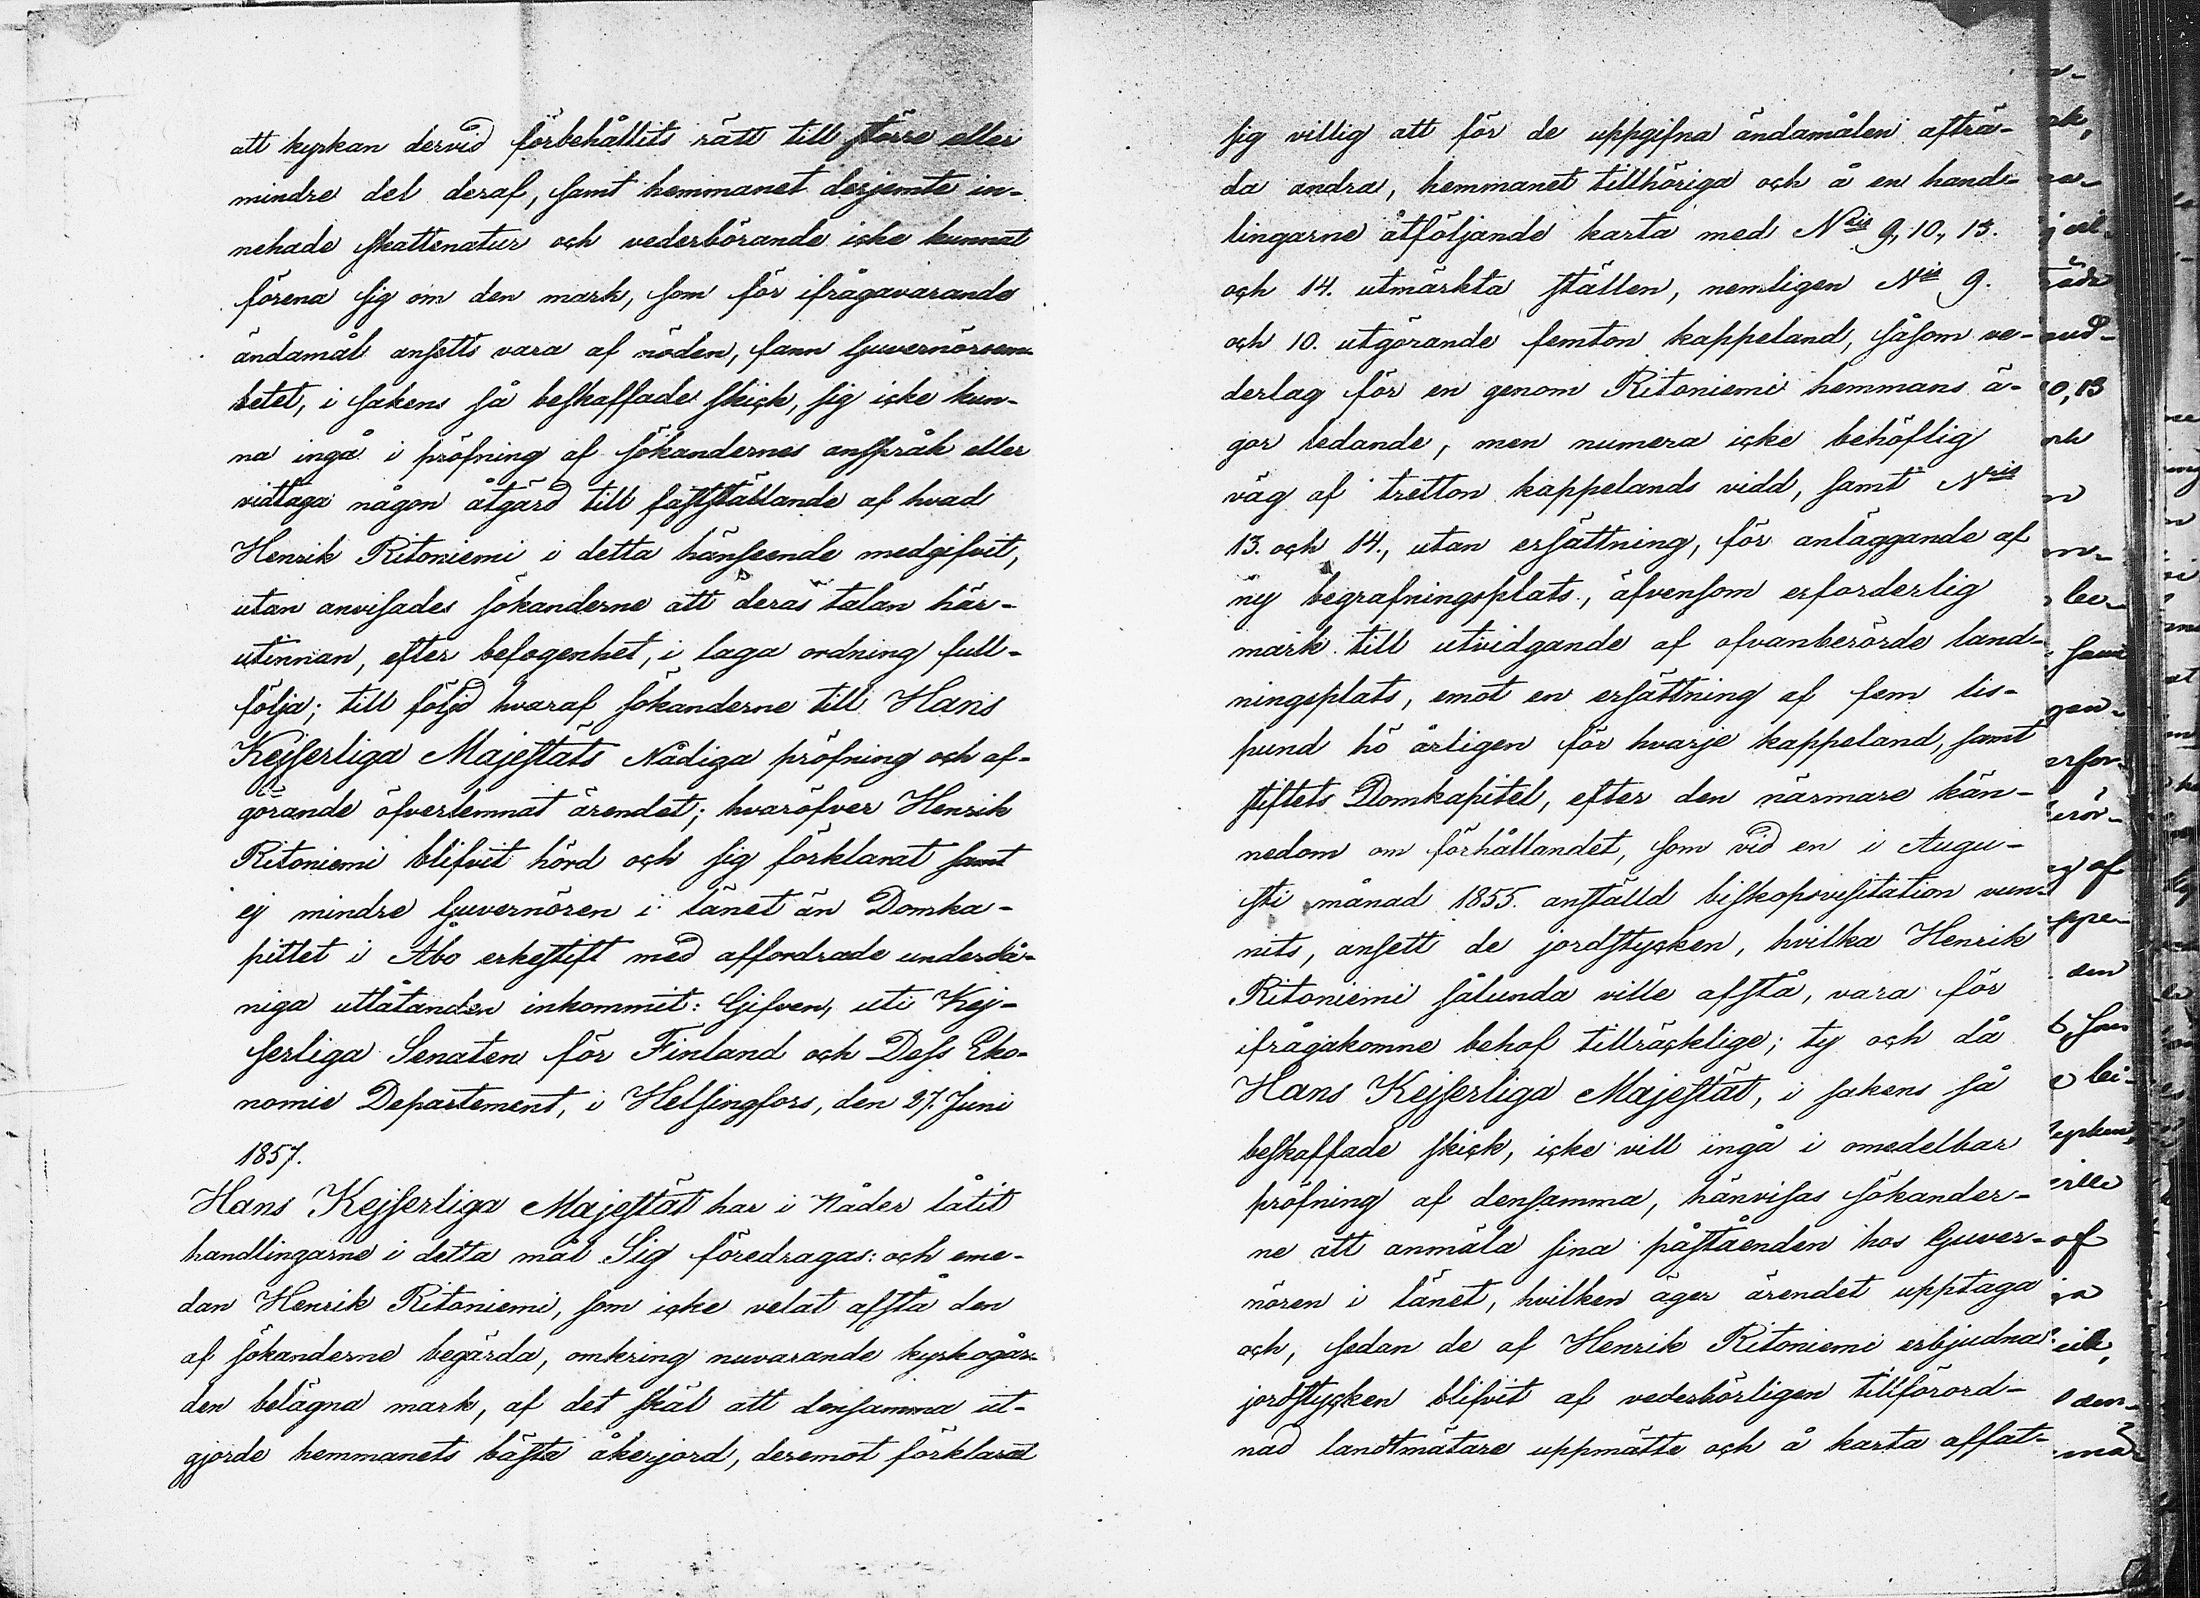 att kyrkan dervid förbehållits rätt till större eller
mindre del deraf, samt hemmanet derjemte in-
nehade skattenatur och vederbörande icke kunnat
förena sig om den mark, som för ifrågavarande
ändamål ansetts vara af nöden, fann Guvernörsem-
betet, i sakens så beskaffade skick, sig icke kun-
na ingå i pröfning af sökandernes anspråk eller
vidtaga någon åtgärd till fastställande af hvad
Henrik Ritoniemi i detta hänseende medgifvit,
utan anvisades sökanderne att deras talan här-
utinnan, efter befogenhet, i laga ordning full-
följa; till följd hvaraf sökanderne till Hans
Kejserliga Majestäts Nådiga pröfning och af-
görande öfverlemnat ärendet; hvaröfver Henrik
Ritoniemi blifvit hörd och sig förklarat samt
ej mindre Guvernören i länet än Domka-
pitlet i Åbo erkestift med affordrade underdå-
niga utlåtanden inkommit: Gifven, uti Kej-
serliga Senaten för Finland och Dess Eko-
nomie Departement, i Helsingfors, den 27. Juni
1857.
Hans Kejserliga Majestät har i Nåder låtit
handlingarne i detta mål Sig föredragas: och eme-
dan Henrik Ritoniemi, som icke velat afstå den
af sökanderne begärda, omkring nuvarande kyrkogår-
den belägna mark, af det skäl att densamma ut-
gjorde hemmanets bästa åkerjord, deremot förklarat
sig villig att för de uppgifna ändamålen afträ-
da andra, hemmanet tillhöriga och å en hand-
lingarne åtföljande karta med Nris 9, 10, 13.
och 14. utmärkta ställen, nemligen Nris 9.
och 10. utgörande femton kappeland, såsom ve-
derlag för en genom Ritoniemi hemmans ä-
gor ledande, men numera icke behöflig
väg af tretton kappelands vidd, samt Nris
13. och 14., utan ersättning, för anläggande af
ny begrafningsplats, äfvensom erforderlig
mark till utvidgande af ofvanberörde land-
ningsplats, emot en ersättning af fem lis-
pund hö årligen för hvarje kappeland, samt
stiftets Domkapitel, efter den närmare kän-
nedom om förhållandet, som vid en i Augu-
sti månad 1855. anställd biskopsvisitation vun-
nits, ansett de jordstycken, hvilka Henrik
Ritoniemi sålunda ville afstå, vara för
ifrågakomne behof tillräcklige; ty och då
Hans Kejserliga Majestät, i sakens så
beskaffade skick, icke vill ingå i omedelbar
pröfning af densamma, hänvisas sökander-
ne att anmäla sina påståenden hos Guver-
nören i länet, hvilken äger ärendet upptaga
och, sedan de af Henrik Ritoniemi erbjudna
jordstycken blifvit af vederbörligen tillförord-
nad landtmätare uppmätte och å karta affat-